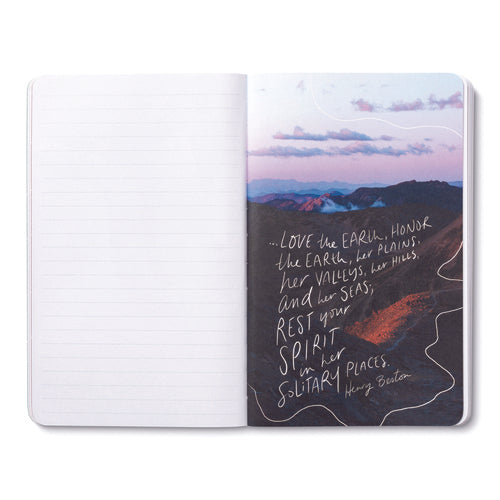 ...LOVE the EARTH, HONOR
the EARTH, her PLAINS,
her VALLEYS, her HILLS,
AND her SEAS;
REST your
SPIRIT
in her
SOLITARY PLACES.
Henry Beston